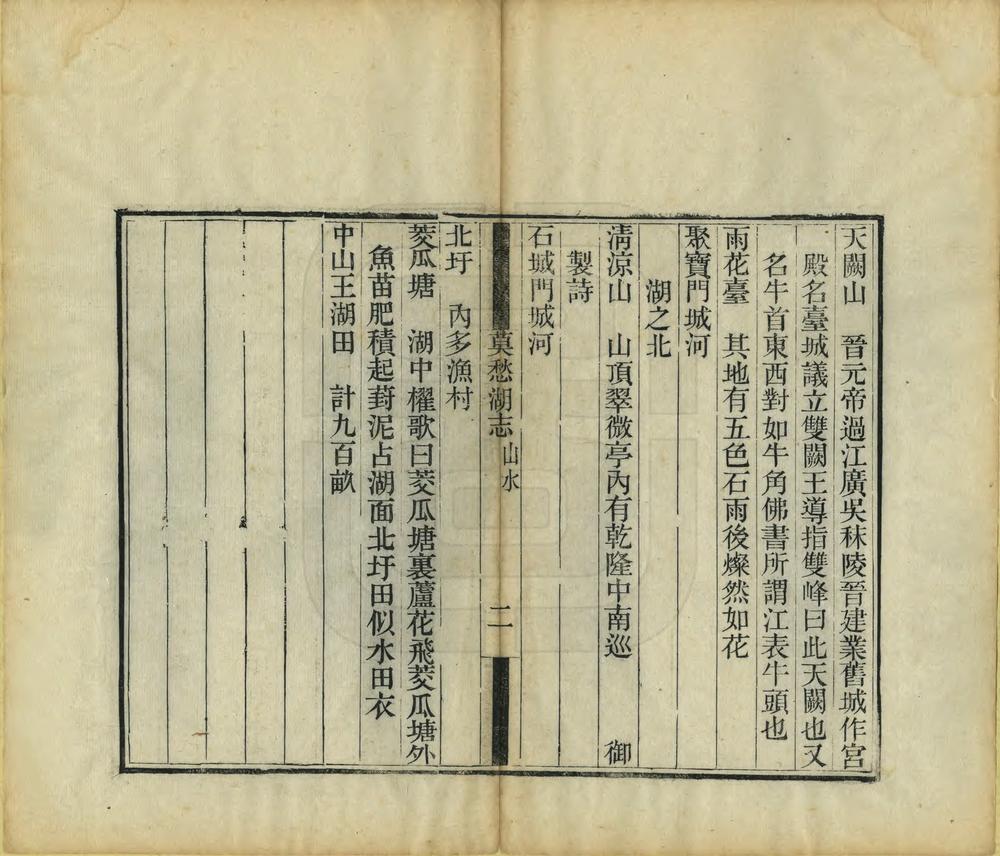 天闕山　晉元帝過江廣吳秣陵晉建業舊城作宮
殿名臺城議立雙闕王導指雙峰曰此天闕也又
名牛首東西對如牛角佛書所謂江表牛頭也
雨花臺　其地有五色石雨後燦然如花
聚寶門城河
湖之北
清涼山　山頂翠微亭內有乾隆中南巡　御
製詩
石城門城河
莫愁湖志　山水　二
北圩　內多漁村
菱瓜塘　湖中櫂歌曰菱瓜塘裏蘆花飛菱瓜塘外
魚苗肥積起葑泥占湖面北圩田似水田衣
中山王湖田　計九百畝